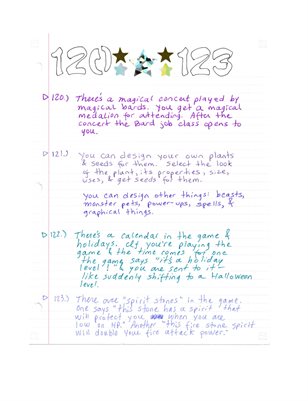 120 123
120.) There's a magical concert played by
magical bards. You get a magical
medallion for attending. After the
concert the Bard job class opens to
you.
121.) You can design your own plants
& seeds for them. Select the look
of the plant, its properties, size,
uses, & get seeds for them.
You can design other things: beasts,
monster pets, power-ups, spells, &
graphical things.
122.) There's a calendar in the game &
holidays. If you're playing the
game & the time comes for one
the game says "it's a holiday
level"! & you are sent to it -
like suddenly shifting to a Halloween
level.
123.) There are "spirit stones" in the game.
One says "this stone has a spirit that
will protect you when you are
low on HP." Another "this fire stone spirit
will double your fire attack power."